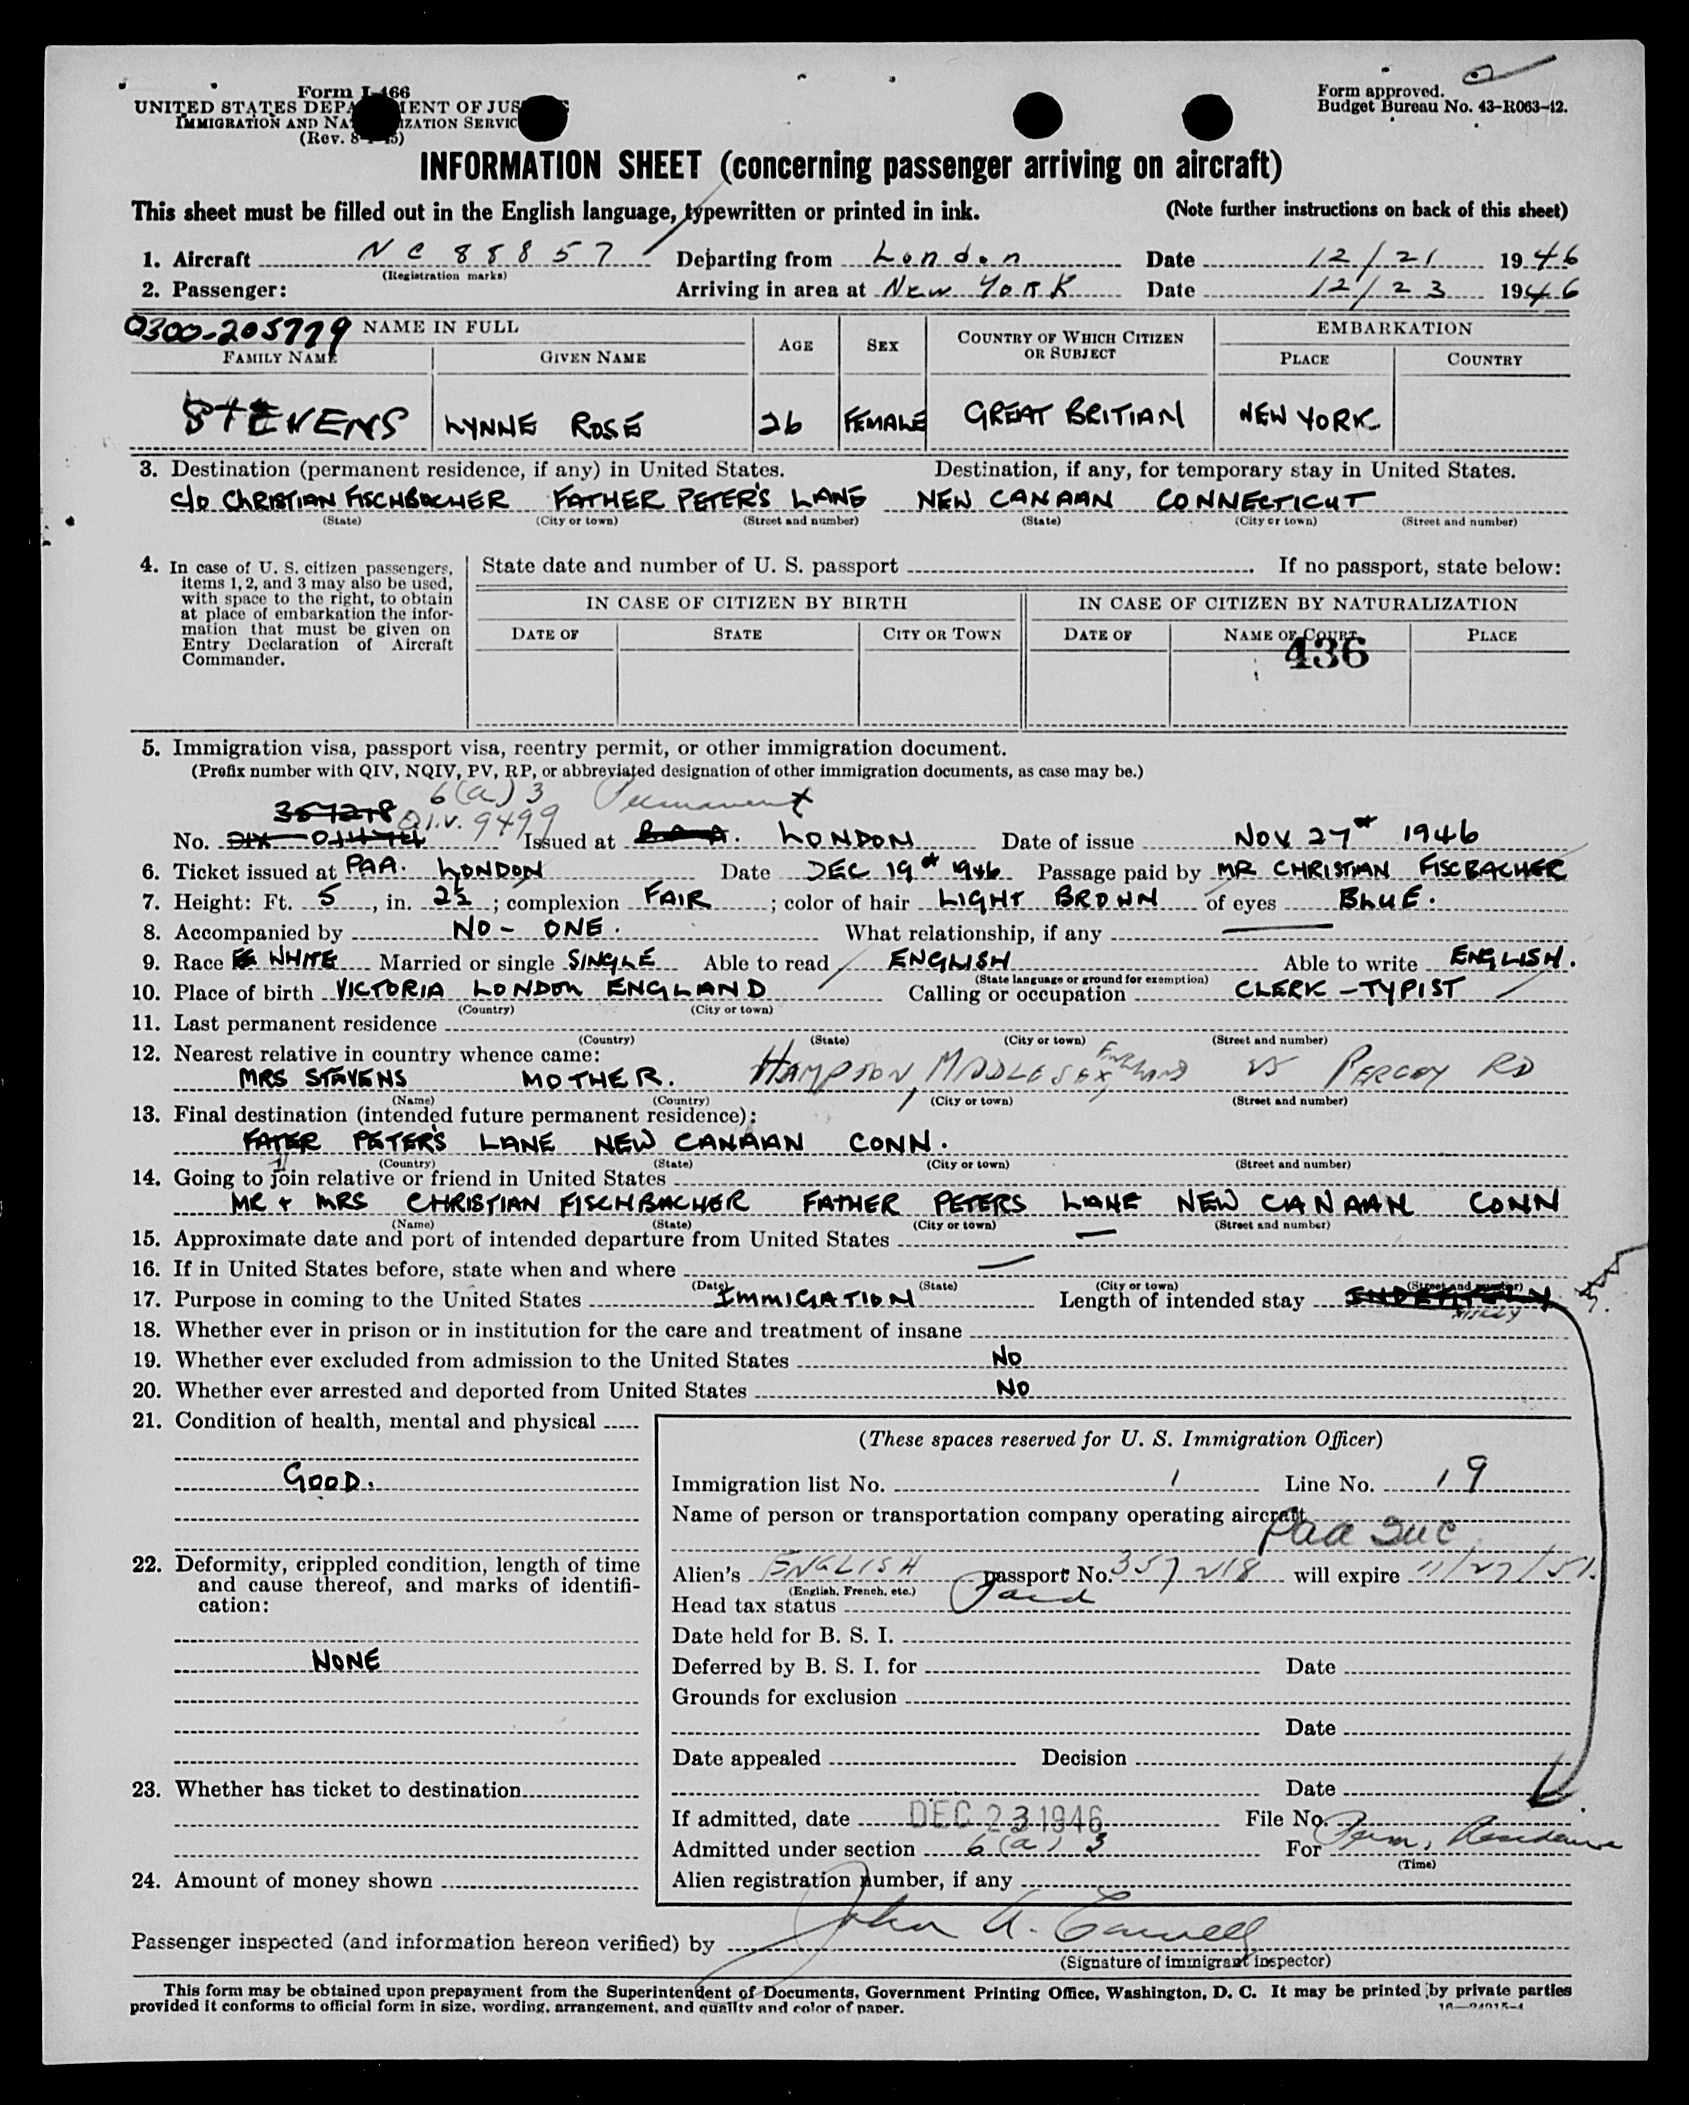 Form I-466
UNITED STATES DEPARTMENT OF JUSTICE
IMMIGRATION AND NATURALIZATION SERVICE
(Rev. 8-1-45)
Form approved.
Budget Bureau No. 43-R063-42.
INFORMATION SHEET (concerning passenger arriving on aircraft)
This sheet must be filled out in the English language, typewritten or printed in ink. (Note further instructions on back of this sheet)
1. Aircraft NC 88857 Departing from London Date 12/21 1946
(Registration marks)
2. Passenger: Arriving in area at New York Date 12/23 1946
0300-205779 NAME IN FULL
FAMILY NAME GIVEN NAME AGE SEX COUNTRY OF WHICH CITIZEN OR SUBJECT EMBARKATION PLACE COUNTRY
STEVENS LYNNE ROSE 26 FEMALE GREAT BRITIAN NEW YORK
3. Destination (permanent residence, if any) in United States. Destination, if any, for temporary stay in United States.
C/O CHRISTIAN FISCHBACHER FATHER PETER'S LANE NEW CANAAN CONNECTICUT
(State) (City or town) (Street and number) (State) (City or town) (Street and number)
4. In case of U. S. citizen passengers, items 1, 2, and 3 may also be used, with space to the right, to obtain at place of embarkation the information that must be given on Entry Declaration of Aircraft Commander.
State date and number of U. S. passport If no passport, state below:
IN CASE OF CITIZEN BY BIRTH IN CASE OF CITIZEN BY NATURALIZATION
DATE OF STATE CITY OR TOWN DATE OF NAME OF COURT PLACE
436
5. Immigration visa, passport visa, reentry permit, or other immigration document.
(Prefix number with QIV, NQIV, PV, RP, or abbreviated designation of other immigration documents, as case may be.)
6(a) 3 Permanent
357218
No. Q.I.V. 9499 Issued at LONDON Date of issue NOV 27th 1946
6. Ticket issued at PAA. LONDON Date DEC 19th 1946 Passage paid by MR CHRISTIAN FISCBACHER
7. Height: Ft. 5, in. 2½; complexion FAIR; color of hair LIGHT BROWN of eyes BLUE.
8. Accompanied by NO-ONE. What relationship, if any —
9. Race WHITE Married or single SINGLE Able to read ENGLISH Able to write ENGLISH.
(State language or ground for exemption)
10. Place of birth VICTORIA LONDON ENGLAND Calling or occupation CLERK-TYPIST
(Country) (City or town)
11. Last permanent residence
(Country) (State) (City or town) (Street and number)
12. Nearest relative in country whence came:
MRS STAVENS MOTHER. HAMPTON, MIDDLESEX England 25 PERCY RD
(Name) (Country) (City or town) (Street and number)
13. Final destination (intended future permanent residence):
FATER PETER'S LANE NEW CANAAN CONN.
(Country) (State) (City or town) (Street and number)
14. Going to join relative or friend in United States
MR + MRS CHRISTIAN FISCHBACHER FATHER PETERS LANE NEW CANAAN CONN
(Name) (State) (City or town) (Street and number)
15. Approximate date and port of intended departure from United States —
16. If in United States before, state when and where —
(Date) (State) (City or town) (Street and number)
17. Purpose in coming to the United States IMMIGATION Length of intended stay
18. Whether ever in prison or in institution for the care and treatment of insane
19. Whether ever excluded from admission to the United States NO
20. Whether ever arrested and deported from United States NO
21. Condition of health, mental and physical
GOOD.
22. Deformity, crippled condition, length of time and cause thereof, and marks of identification:
NONE
23. Whether has ticket to destination
24. Amount of money shown
(These spaces reserved for U. S. Immigration Officer)
Immigration list No. 1 Line No. 19
Name of person or transportation company operating aircraft
Paa Inc
Alien's ENGLISH passport No. 357218 will expire 11/27/51.
(English, French, etc.)
Head tax status Paid
Date held for B. S. I.
Deferred by B. S. I. for Date
Grounds for exclusion
Date
Date appealed Decision
Date
If admitted, date DEC 23 1946 File No.
Admitted under section 6(a) 3 For Perm, Residence
(Time)
Alien registration number, if any
Passenger inspected (and information hereon verified) by John A.
(Signature of immigrant inspector)
This form may be obtained upon prepayment from the Superintendent of Documents, Government Printing Office, Washington, D. C. It may be printed by private parties
provided it conforms to official form in size, wording, arrangement, and quality and color of paper.